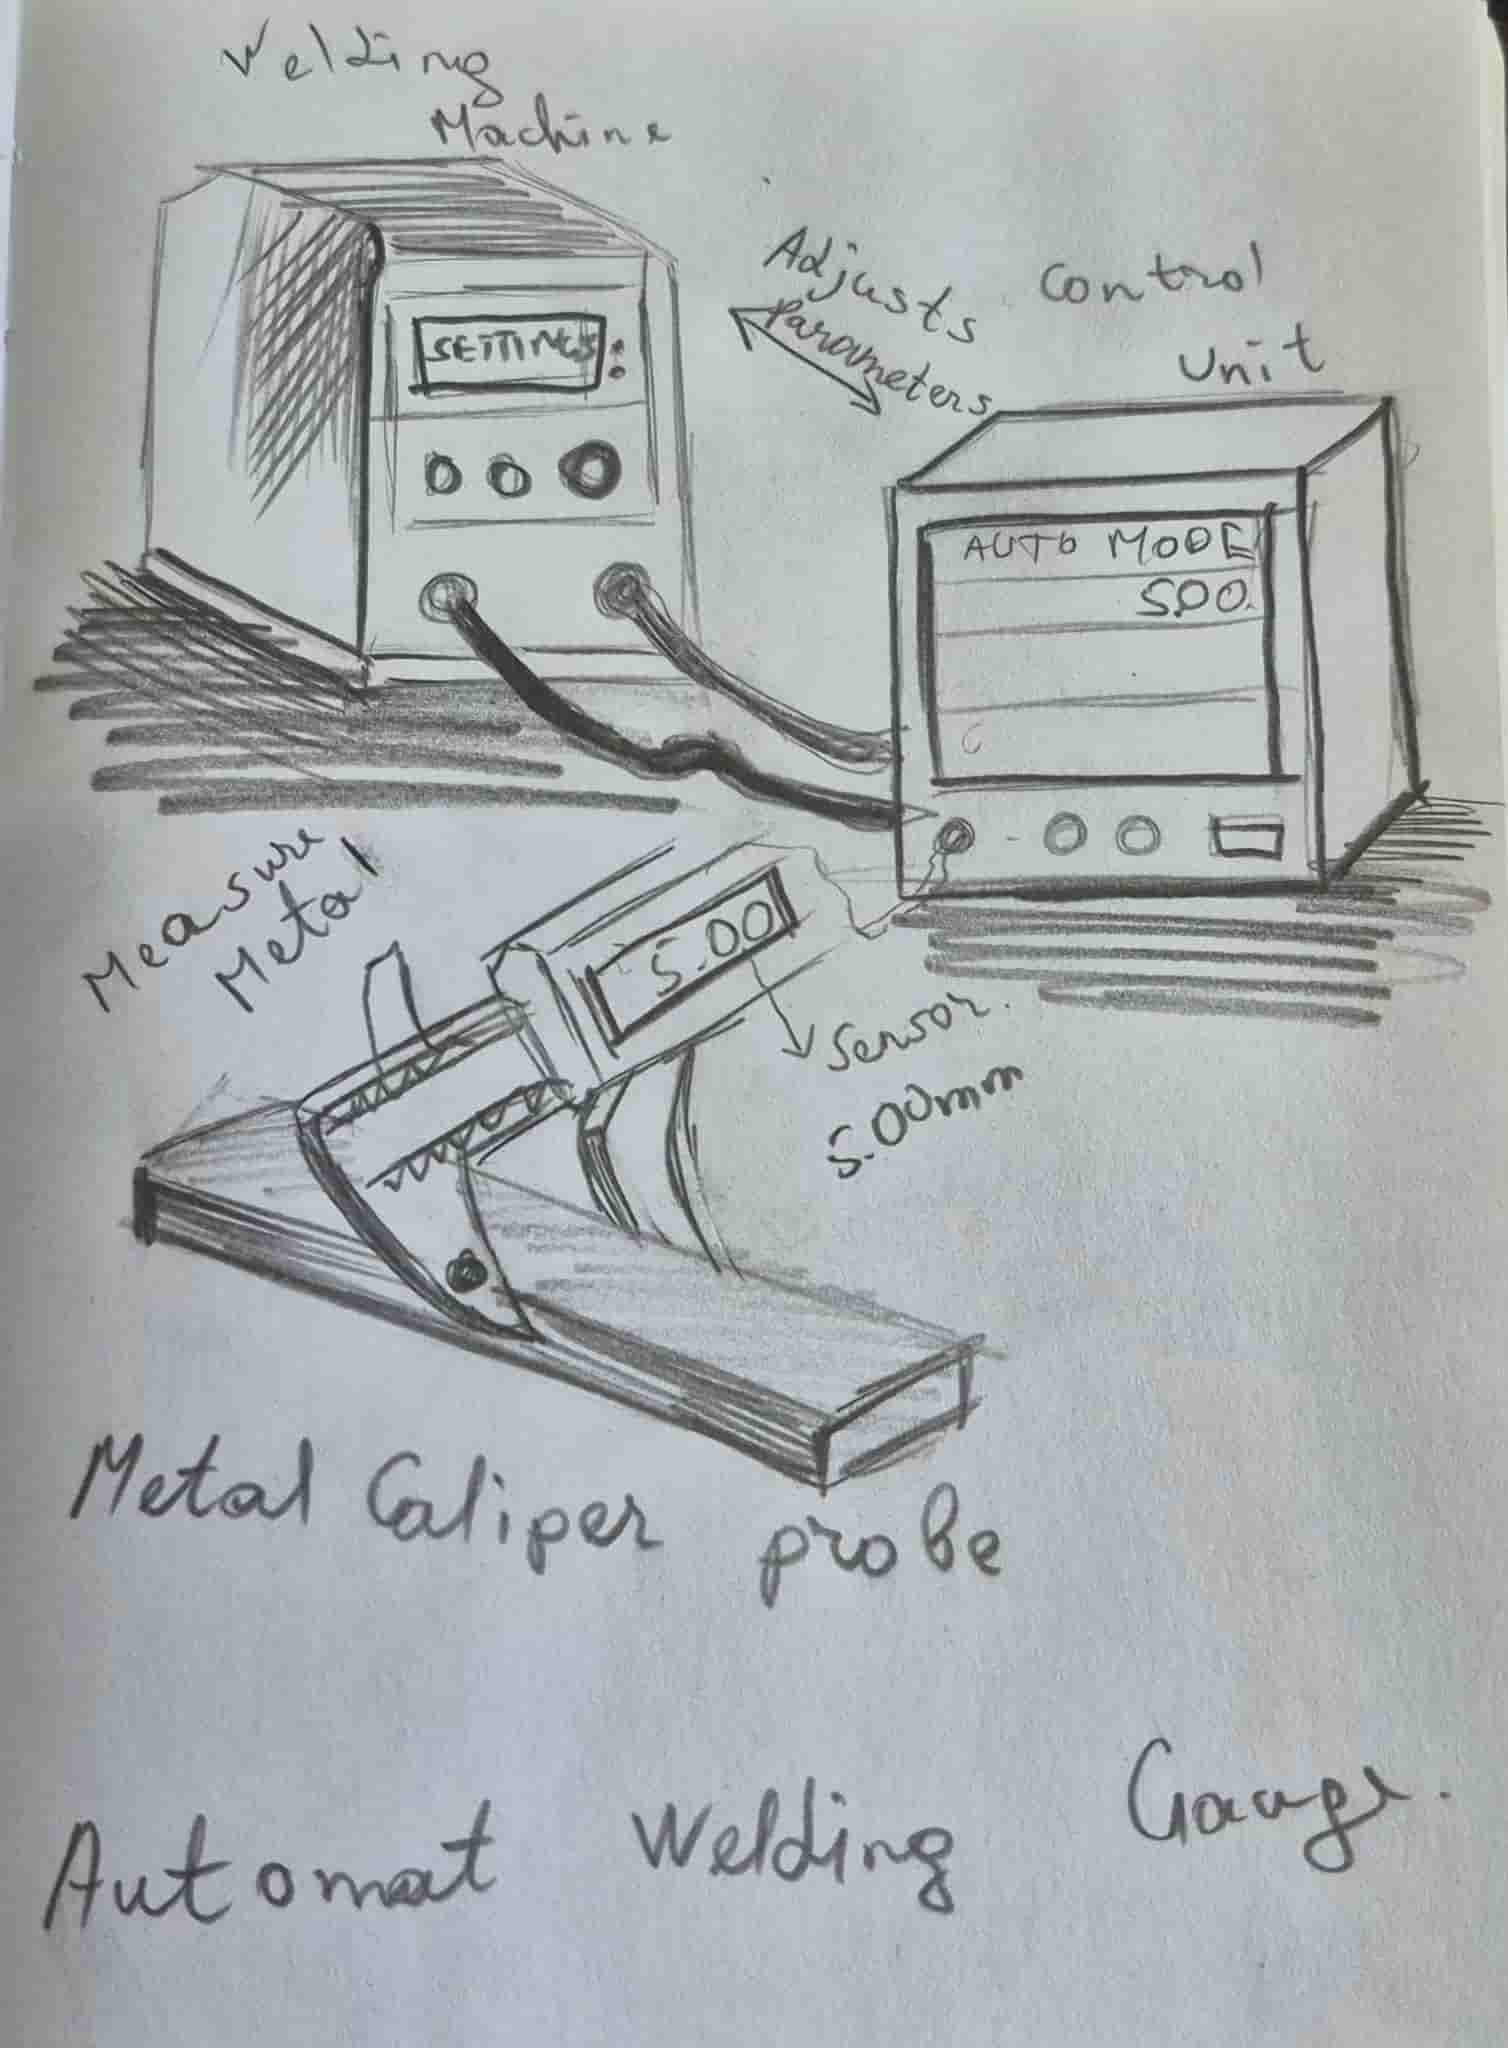 Welding
Machine
Adjusts
Parameters
Control
Unit
SETTINGS
AUTO MODE
5.00
Measure
Metal
5.00
Sensor.
5.00mm
Metal Caliper probe
Automat Welding Gauge.